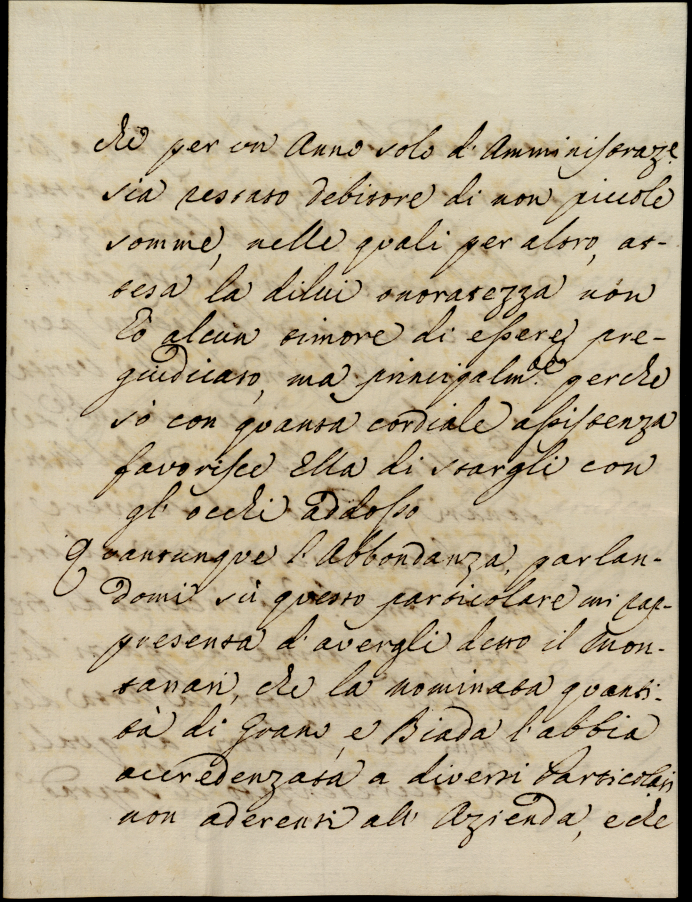 che per un Anno solo d'Amministraze
sia restato debitore di non piccole
somme, nelle quali per altro, at-
tesa la dilui onoratezza non
ò alcun timore di essere pre-
giudicato, ma principalmte perche
sò con quanta cordiale assistenza
favorisce Ella di stargli con
gl'occhi addosso
Quantunque l'Abbondanza, parlan-
domi sù questo particolare mi rap-
presenta d'avergli detto il Mon-
tanari, che la nominata quanti-
tà di Grano, e Biada l'abbia
accredenzata a diversi Particolari
non aderenti all'Azienda, e che